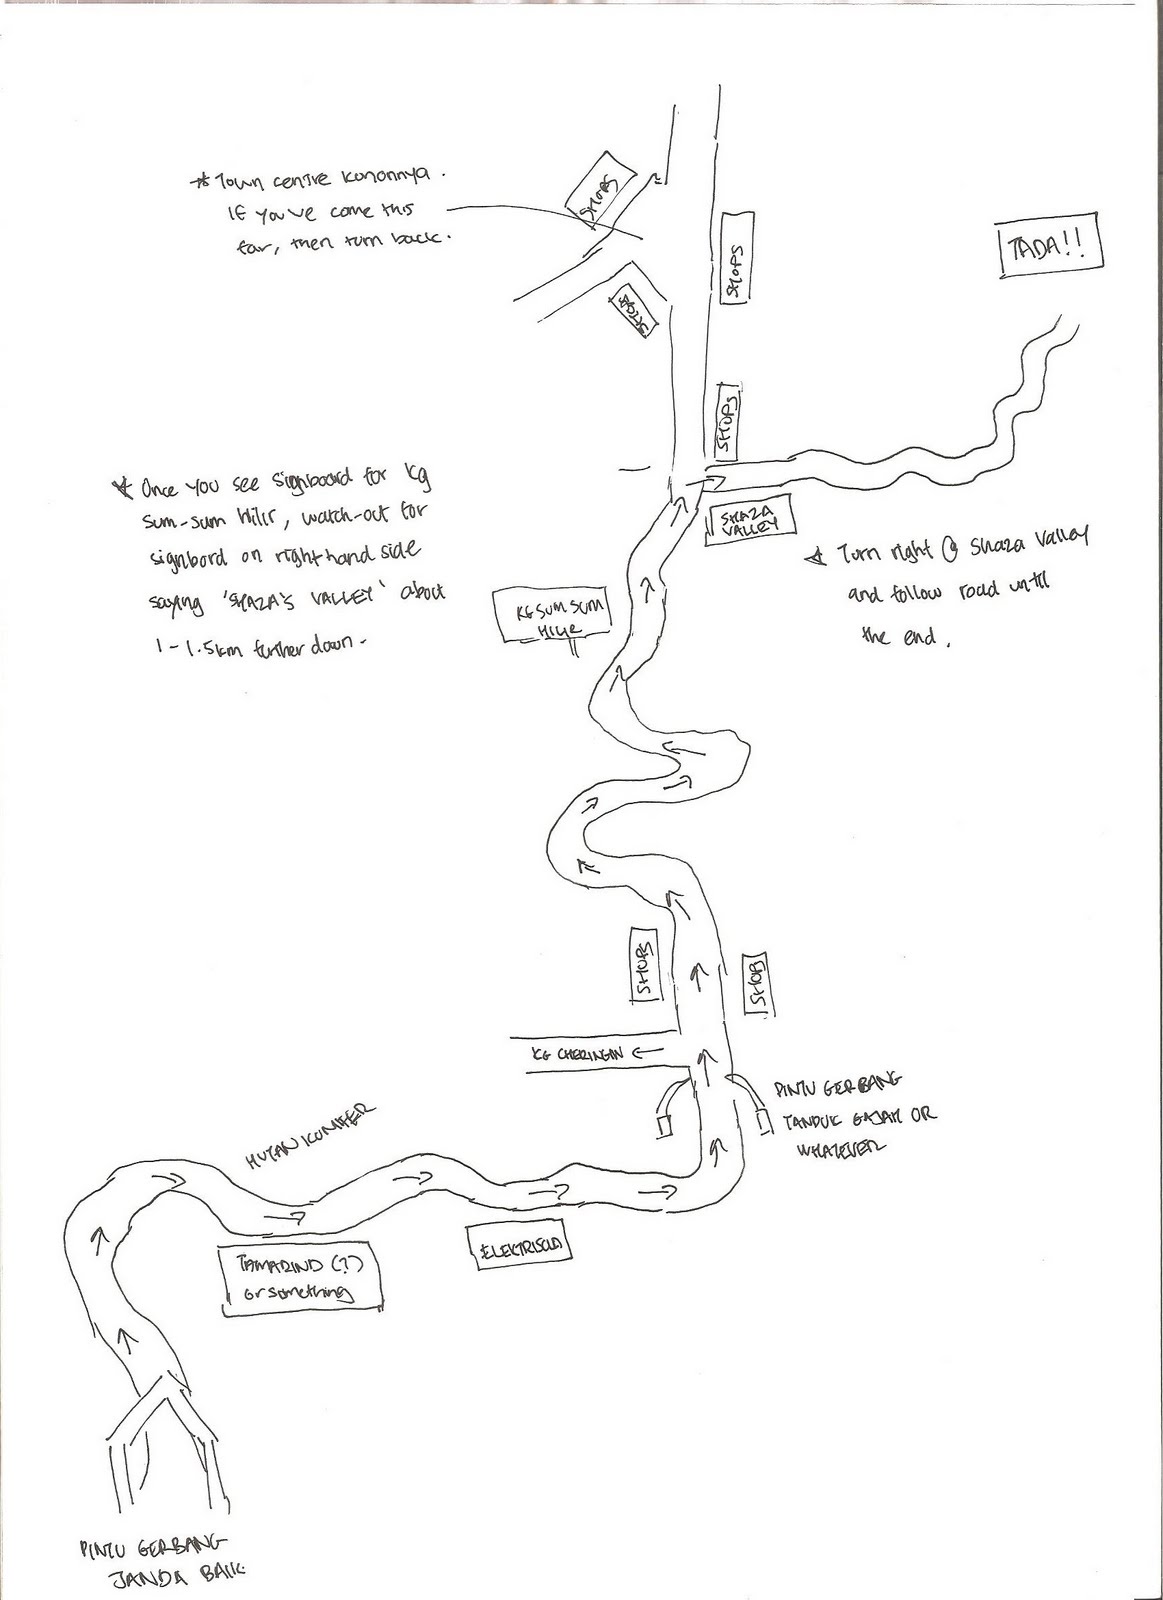 * Town centre kononnya.
If you've come this
far, then turn back.
SHOPS
SHOPS
SHOPS
TADA!!
SHOPS
* Once you see signboard for Kg
Sum-sum Hilir, watch-out for
signbord on right hand side
saying 'SHAZA'S VALLEY' about
1-1.5km further down.
SHAZA
VALLEY
* Turn right @ Shaza Valley
and follow road until
the end.
KG SUM SUM
HILIR
SHOPS
SHOP
KG CHERINGIN ←
PINTU GERBANG
TANDUK GAJAH OR
WHATEVER
HUTAN KONIFER
TAMARIND (?)
or something
ELEKTRISOLA
PINTU GERBANG
JANDA BAIK